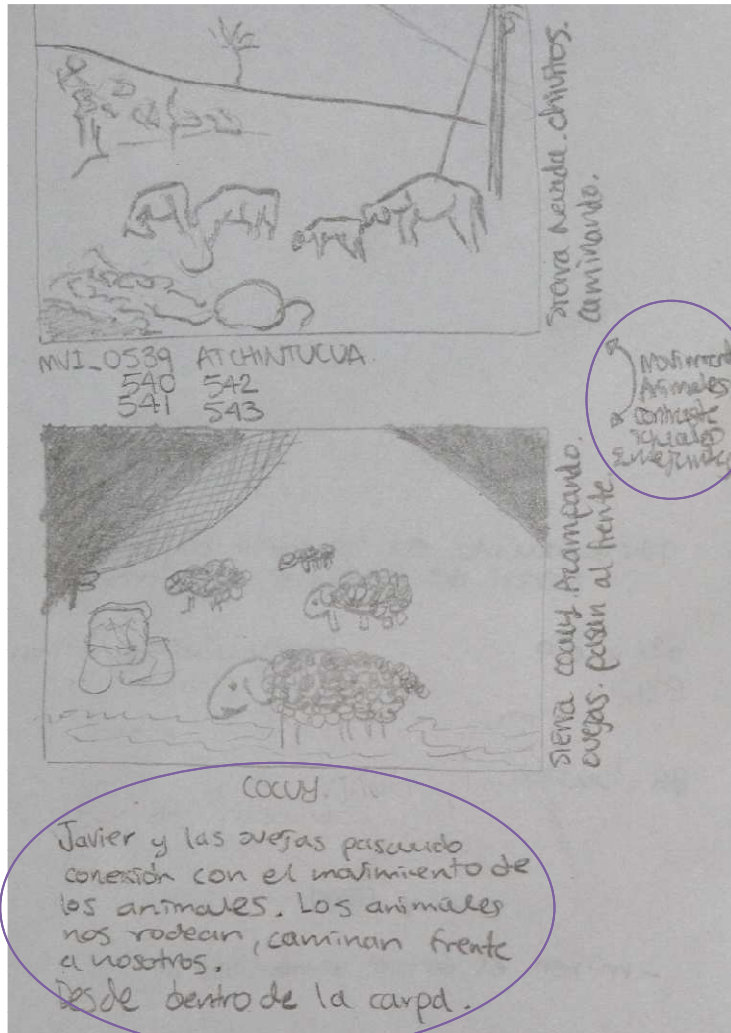 Sierra nevada. chivitos.
caminando.
MVI_0539 ATCHINTUCUA.
540 542
541 543
Movimiento
Animales
contraste
Sierra cocuy Acampando.
ovejas. pasan al frente.
COCUY.
Javier y las ovejas pasando
conexión con el movimiento de
los animales. Los animales
nos rodean, caminan frente
a nosotros.
Desde dentro de la carpa.